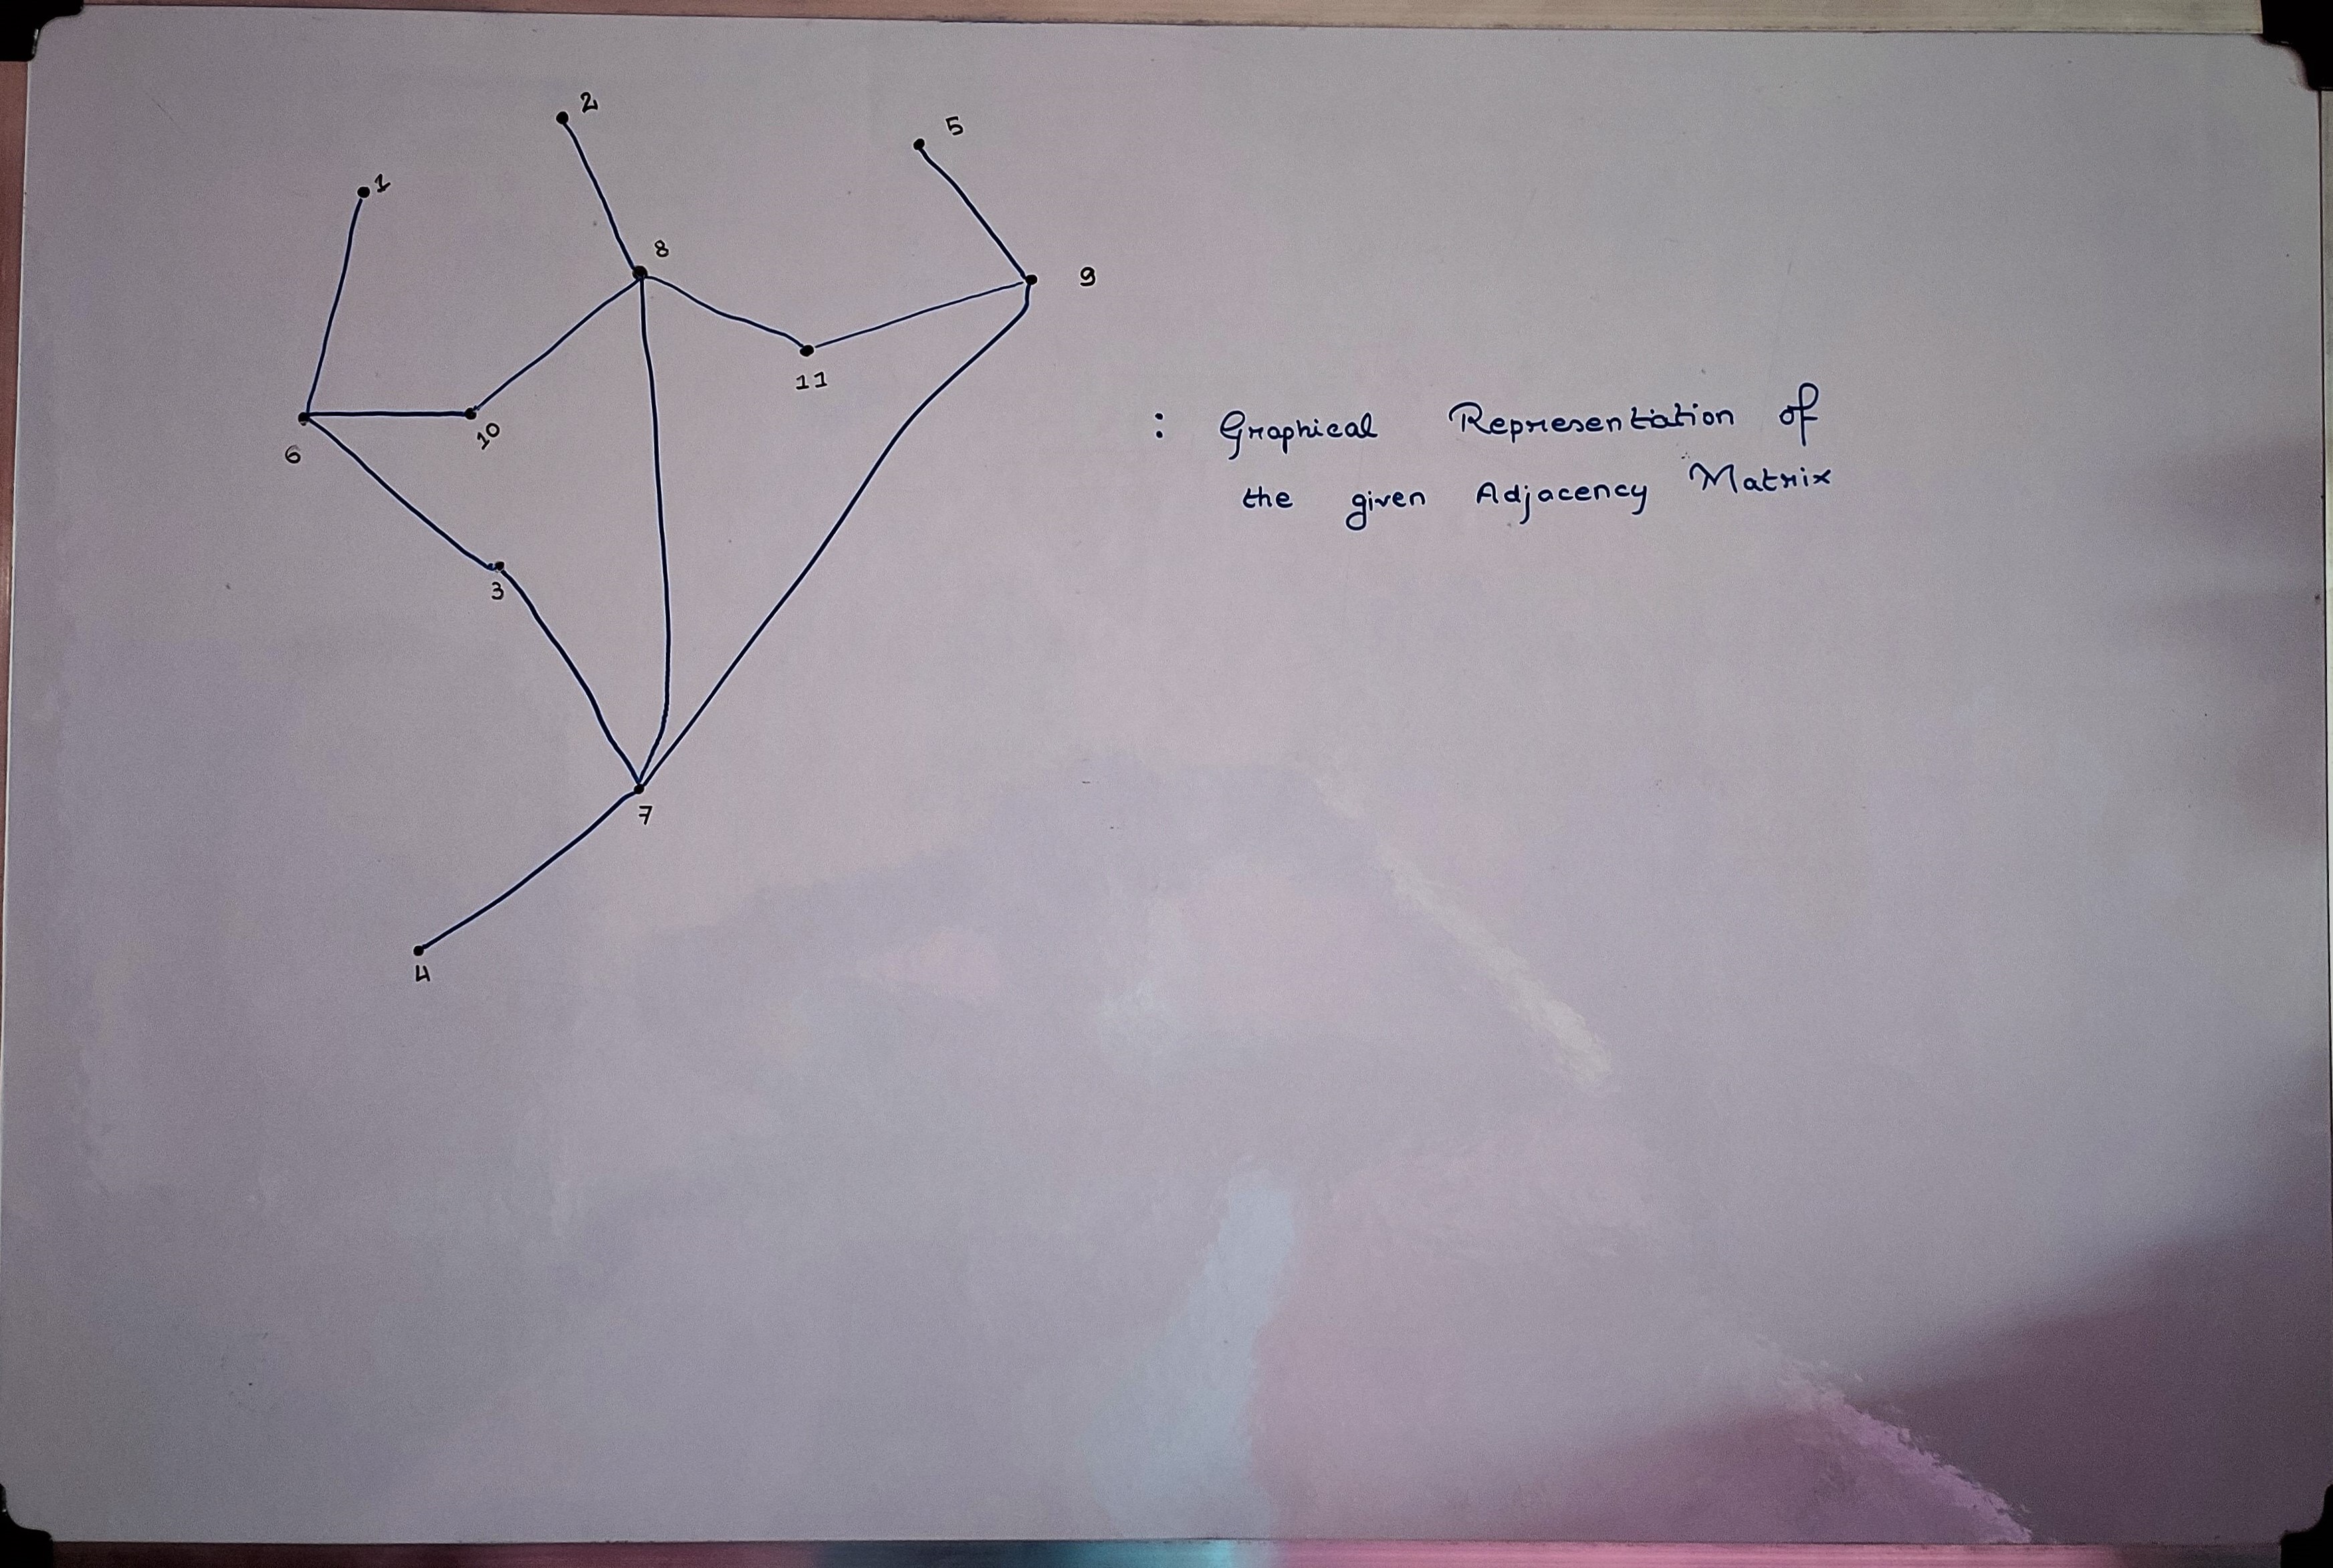 2
5
1
8
9
11
10
6
: Graphical Representation of
the given Adjacency Matrix
3
7
4